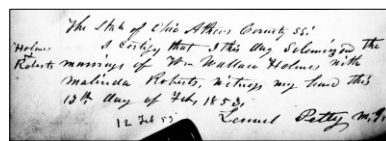 The State of Ohio Athens County SS:
Holmes & Roberts
I certify that I this day Solemnized the
marriage of Wm Wallace Holmes with
Malinda Roberts, witness my hand this
12th day of Feb, 1853,
12 Feb 53
Lemuel Petty M.G.